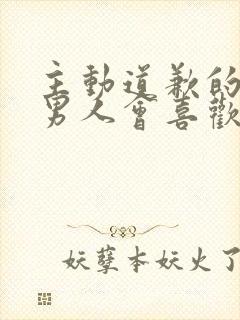 主動道歉的
男人會喜歡
妖孽本妖火了